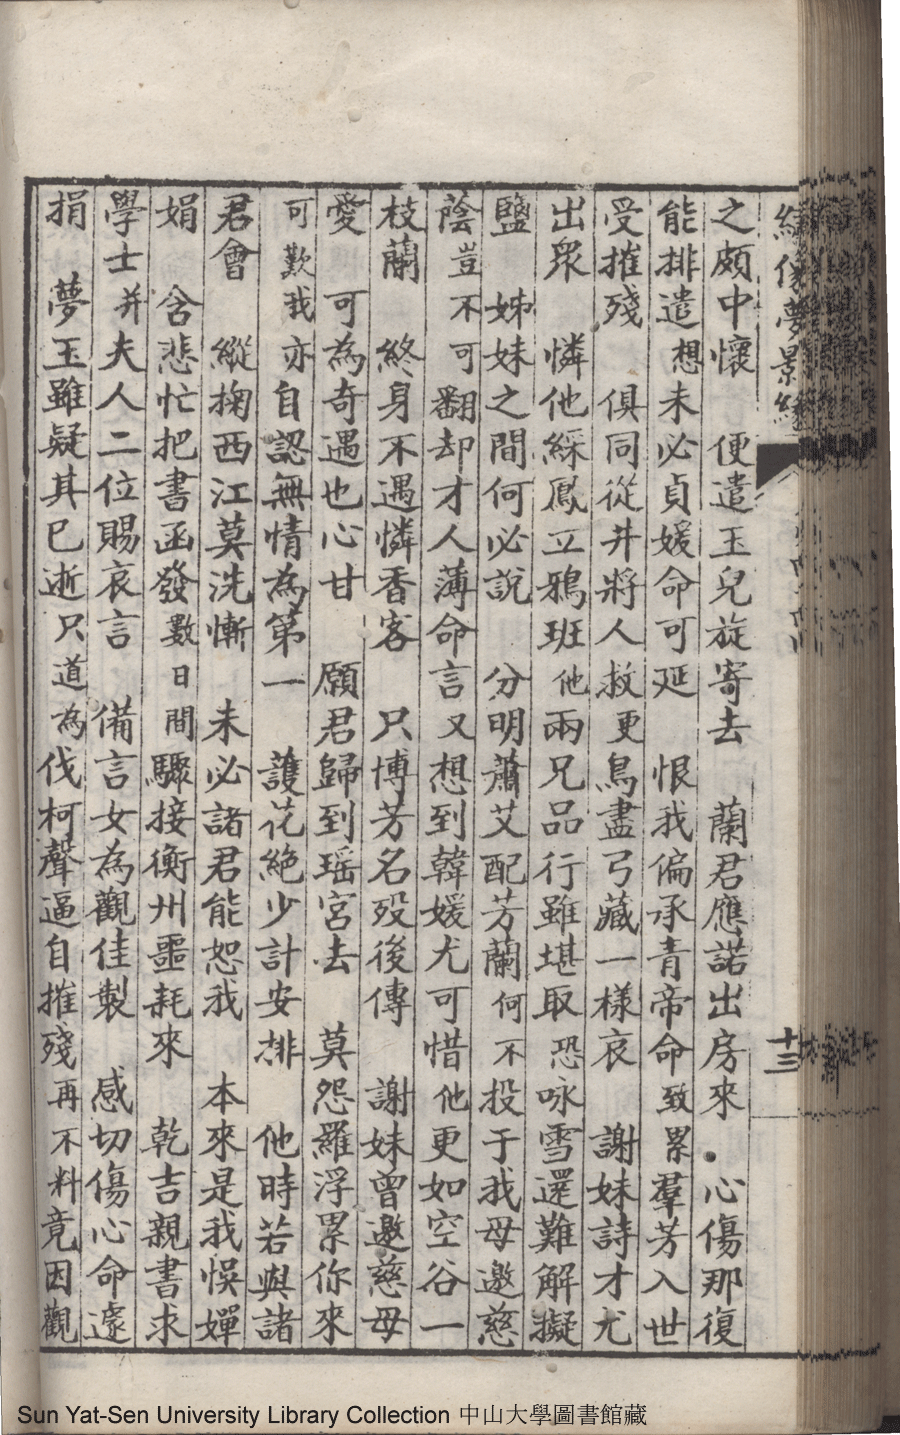 繡像夢景緣
十三
之頗中懷　便遣玉兒旋寄去　蘭君應諾出房來．心傷那復
能排遣想未必貞媛命可延　恨我偏承青帝命致累羣芳入世
受摧殘　俱同從井將人救更鳥盡弓藏一樣哀　謝妹詩才尤
出眾　憐他綵鳳立鴉班他兩兄品行雖堪取恐咏雪還難解擬
鹽　姊妹之間何必說　分明蕭艾配芳蘭何不投于我母邀慈
蔭豈不可翻却才人薄命言又想到韓媛尤可惜他更如空谷一
枝蘭　終身不遇憐香客　只博芳名歿後傳　謝妹曾邀慈母
愛　可為奇遇也心甘　願君歸到瑶宮去　莫怨羅浮累你來
可歎我亦自認無情為第一　護花絶少計安排　他時若與諸
君會　縱掬西江莫洗慚　未必諸君能恕我　本來是我悞嬋
娟　含悲忙把書函發數日間驟接衡州噩耗來　乾吉親書求
學士并夫人二位賜哀言　備言女為觀佳製　感切傷心命遽
捐　夢玉雖疑其已逝只道為伐柯聲逼自摧殘再不料竟因觀
Sun Yat-Sen University Library Collection 中山大學圖書館藏